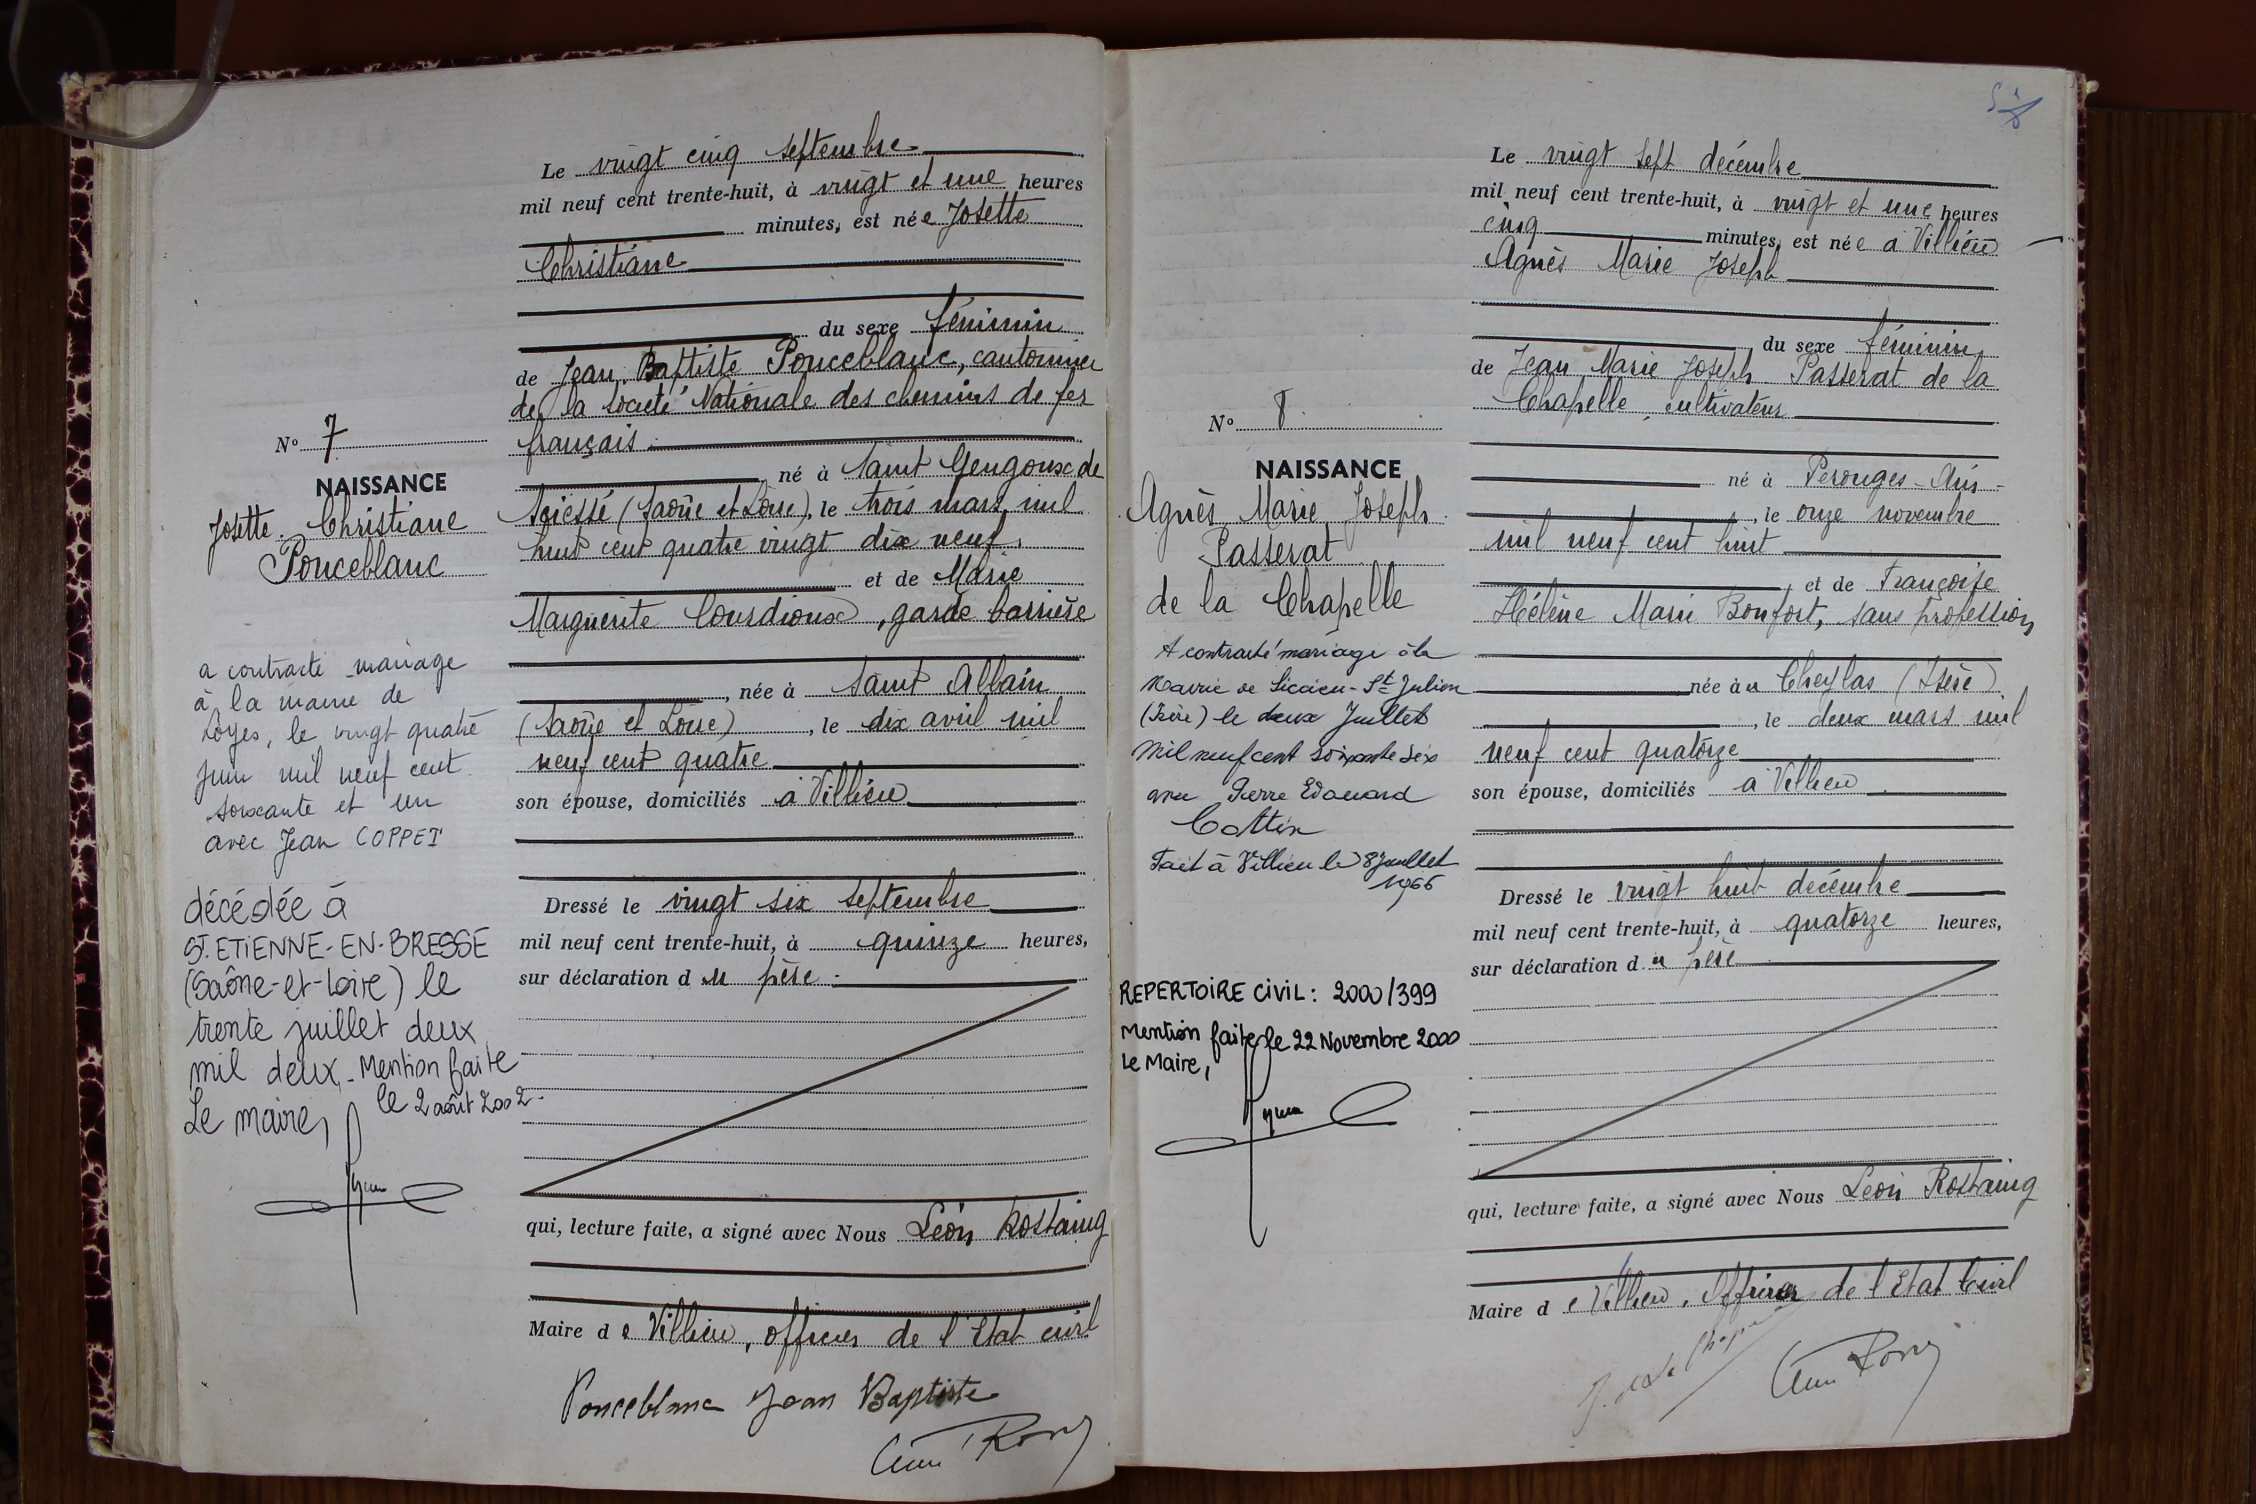 N° 7
NAISSANCE
Josette Christiane
Ponceblanc
a contracté mariage
à la mairie de
Loyes, le vingt quatre
Juin mil neuf cent
soixante et un
avec Jean COPPET
décédée à
ST. ETIENNE-EN-BRESSE
(Saône-et-Loire) le
trente juillet deux
mil deux. Mention faite
le 2 août 2002.
Le maire,
Le vingt cinq septembre
mil neuf cent trente-huit, à vingt et une heures
minutes, est née Josette
Christiane
du sexe féminin
de Jean Baptiste Ponceblanc, cantonnier
de la Société Nationale des chemins de fer
français
né à Saint Gengoux de
Scissé (Saône et Loire), le trois mars mil
huit cent quatre vingt dix neuf,
et de Marie
Marguerite Cousdioux, garde barrière
née à Saint Albain
(Saône et Loire), le dix avril mil
neuf cent quatre
son épouse, domiciliés à Villieu
Dressé le vingt six septembre
mil neuf cent trente-huit, à quinze heures,
sur déclaration du père
qui, lecture faite, a signé avec Nous Léon Rostaing
Maire de Villieu, officier de l'Etat civil
Ponceblanc Jean Baptiste
N° 8
NAISSANCE
Agnès Marie Joseph
Passerat
de la Chapelle
A contracté mariage à la
Mairie de Siccieu-St Julien
(Isère) le deux Juillet
Mil neuf cent soixante six
avec Pierre Edouard
Cottin
Fait à Villieu le 8 Juillet
1966
REPERTOIRE CIVIL : 2000/399
Mention faite le 22 Novembre 2000
Le Maire,
Le vingt sept décembre
mil neuf cent trente-huit, à vingt et une heures
cinq minutes, est née à Villieu
Agnès Marie Joseph
du sexe féminin
de Jean Marie Joseph Passerat de la
Chapelle, cultivateur
né à Perouges - Ain -
, le onze novembre
mil neuf cent huit
et de Françoise
Hélène Marie Bonfort, sans profession
née au Cheylas (Isère)
, le deux mars mil
neuf cent quatorze
son épouse, domiciliés à Villieu
Dressé le vingt huit décembre
mil neuf cent trente-huit, à quatorze heures,
sur déclaration du père
qui, lecture faite, a signé avec Nous Léon Rostaing
Maire de Villieu, Officier de l'Etat Civil